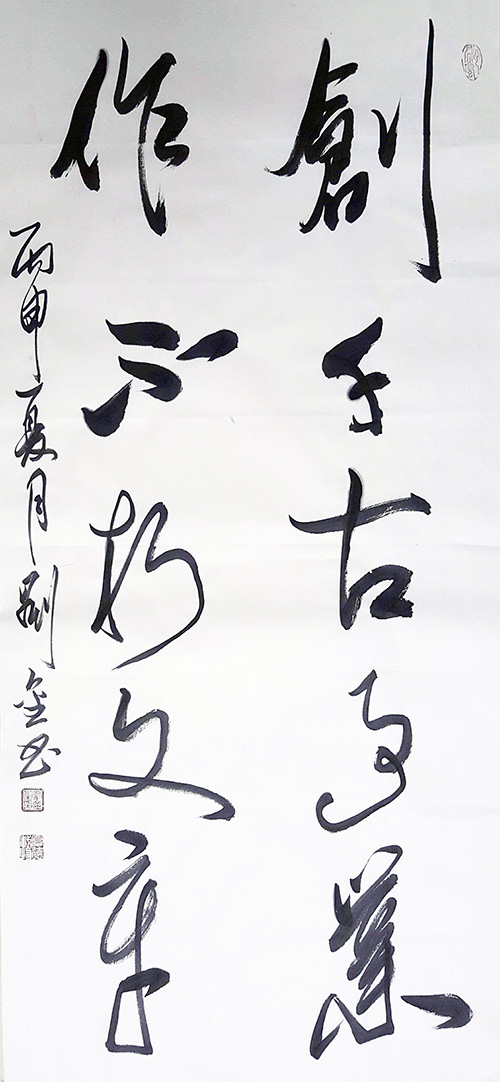 創千古事業
作不朽文章
丙申夏月劉金书